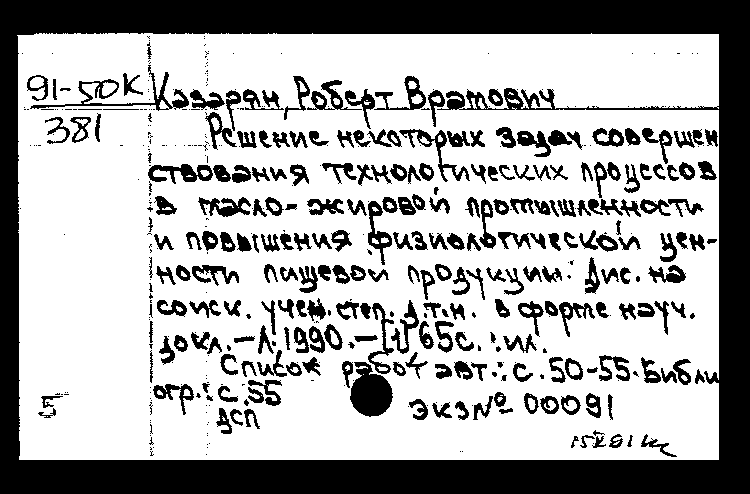 91-50К Казарян, Роберт Врамович
381 Решение некоторых задач совершен
ствования технологических процессов
в масло-жировой промышленности
и повышения физиологической цен-
ности пищевой продукции: Дис. на
соиск. учен. степ. д.т.н. в форме науч.
докл. – Л., 1990. – [1] 65с. : ил.
Список работ авт.: с. 50-55. Библи
огр.: с. 55
5 ДСП ЭКЗ № 00091